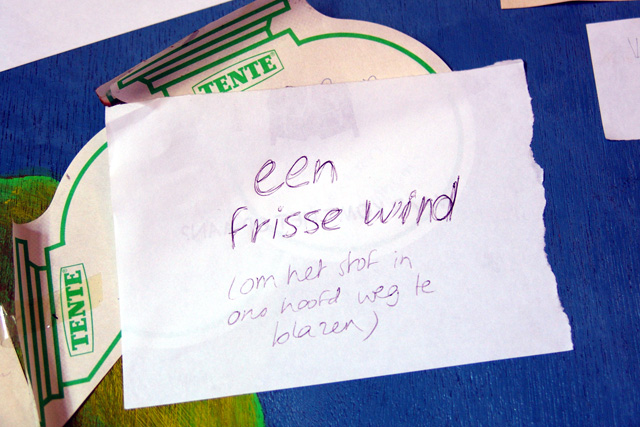 TENTE
een
frisse wind
(om het stof in
ons hoofd weg te
blazen)
TENTE